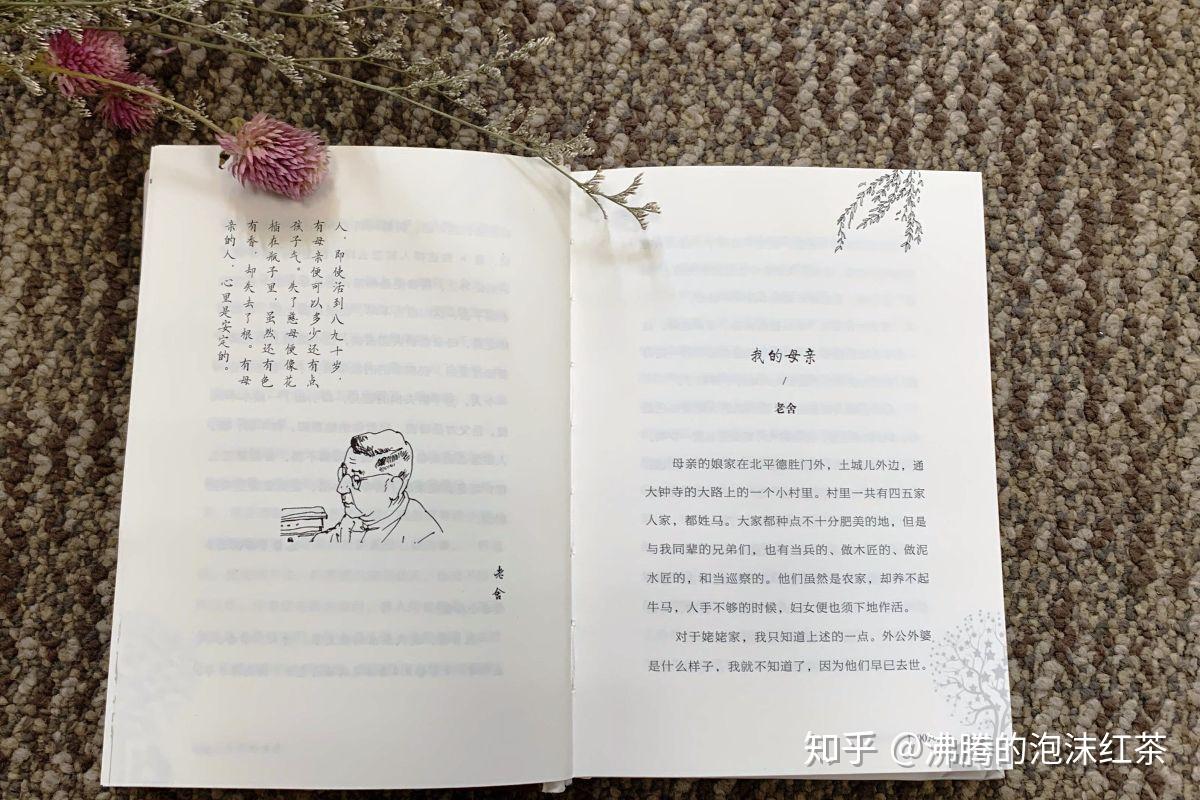 人，即使活到八九十岁，
有母亲便可以多少还有点
孩子气。失了慈母便像花
插在瓶子里，虽然还有色
有香，却失去了根。有母
亲的人，心里是安定的。
老舍
我的母亲
/
老舍
母亲的娘家在北平德胜门外，土城儿外边，通
大钟寺的大路上的一个小村里。村里一共有四五家
人家，都姓马。大家都种点不十分肥美的地，但是
与我同辈的兄弟们，也有当兵的、做木匠的、做泥
水匠的，和当巡察的。他们虽然是农家，却养不起
牛马，人手不够的时候，妇女便也须下地作活。
对于姥姥家，我只知道上述的一点。外公外婆
是什么样子，我就不知道了，因为他们早已去世。
知乎 @沸腾的泡沫红茶